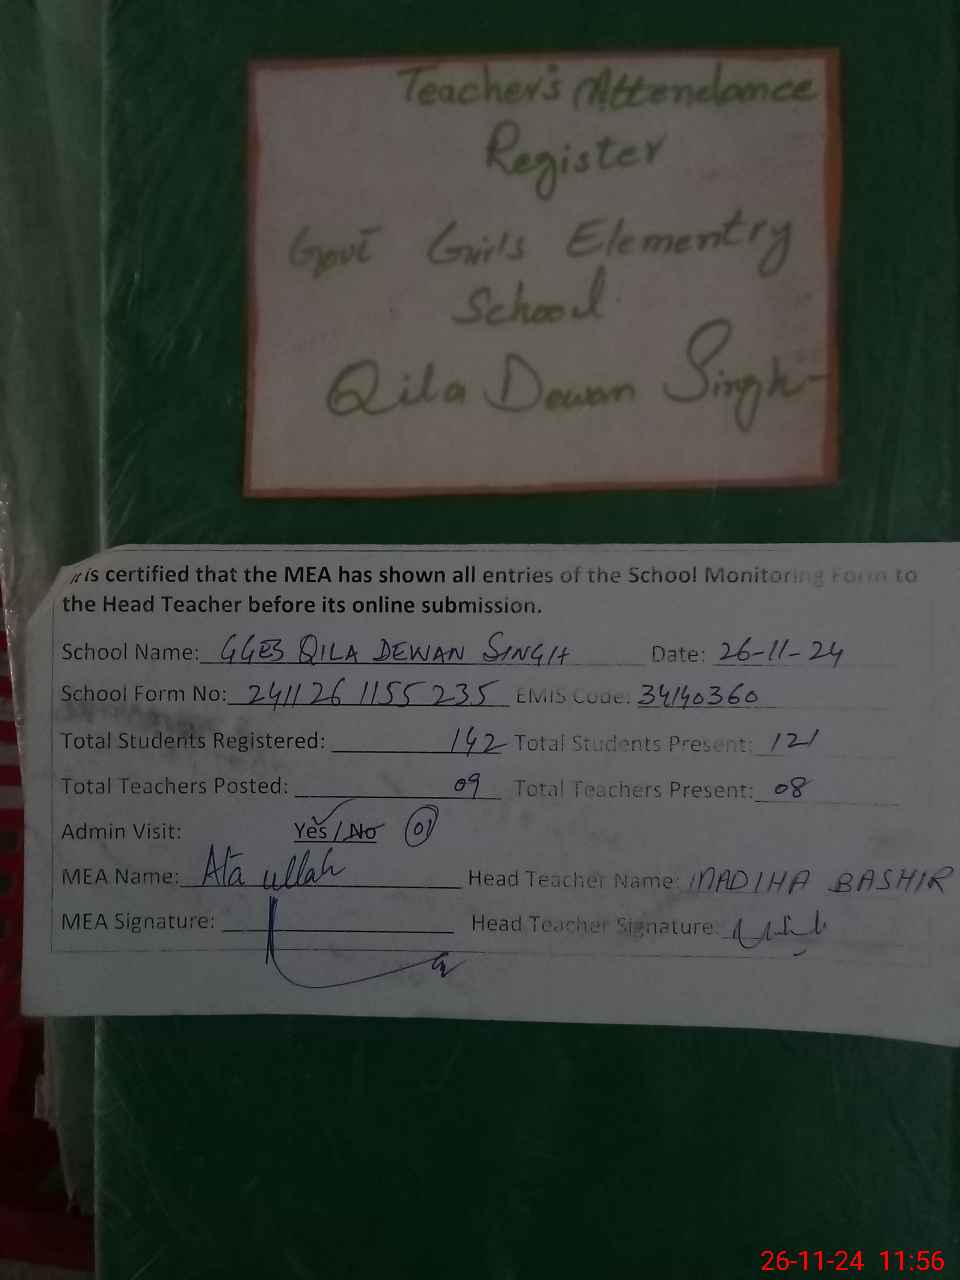 Teacher's Attendance
Register
Govt Girls Elementry
School
Qila Dewan Singh
It is certified that the MEA has shown all entries of the School Monitoring Form to
the Head Teacher before its online submission.
School Name: GGES QILA DEWAN SINGH Date: 26-11-24
School Form No: 241126 1155 235 EMIS Code: 34140360
Total Students Registered: 142 Total Students Present: 121
Total Teachers Posted: 09 Total Teachers Present: 08
Admin Visit: Yes / No 01
MEA Name: Ata ullah Head Teacher Name: MADIHA BASHIR
MEA Signature: Head Teacher Signature:
26-11-24 11:56